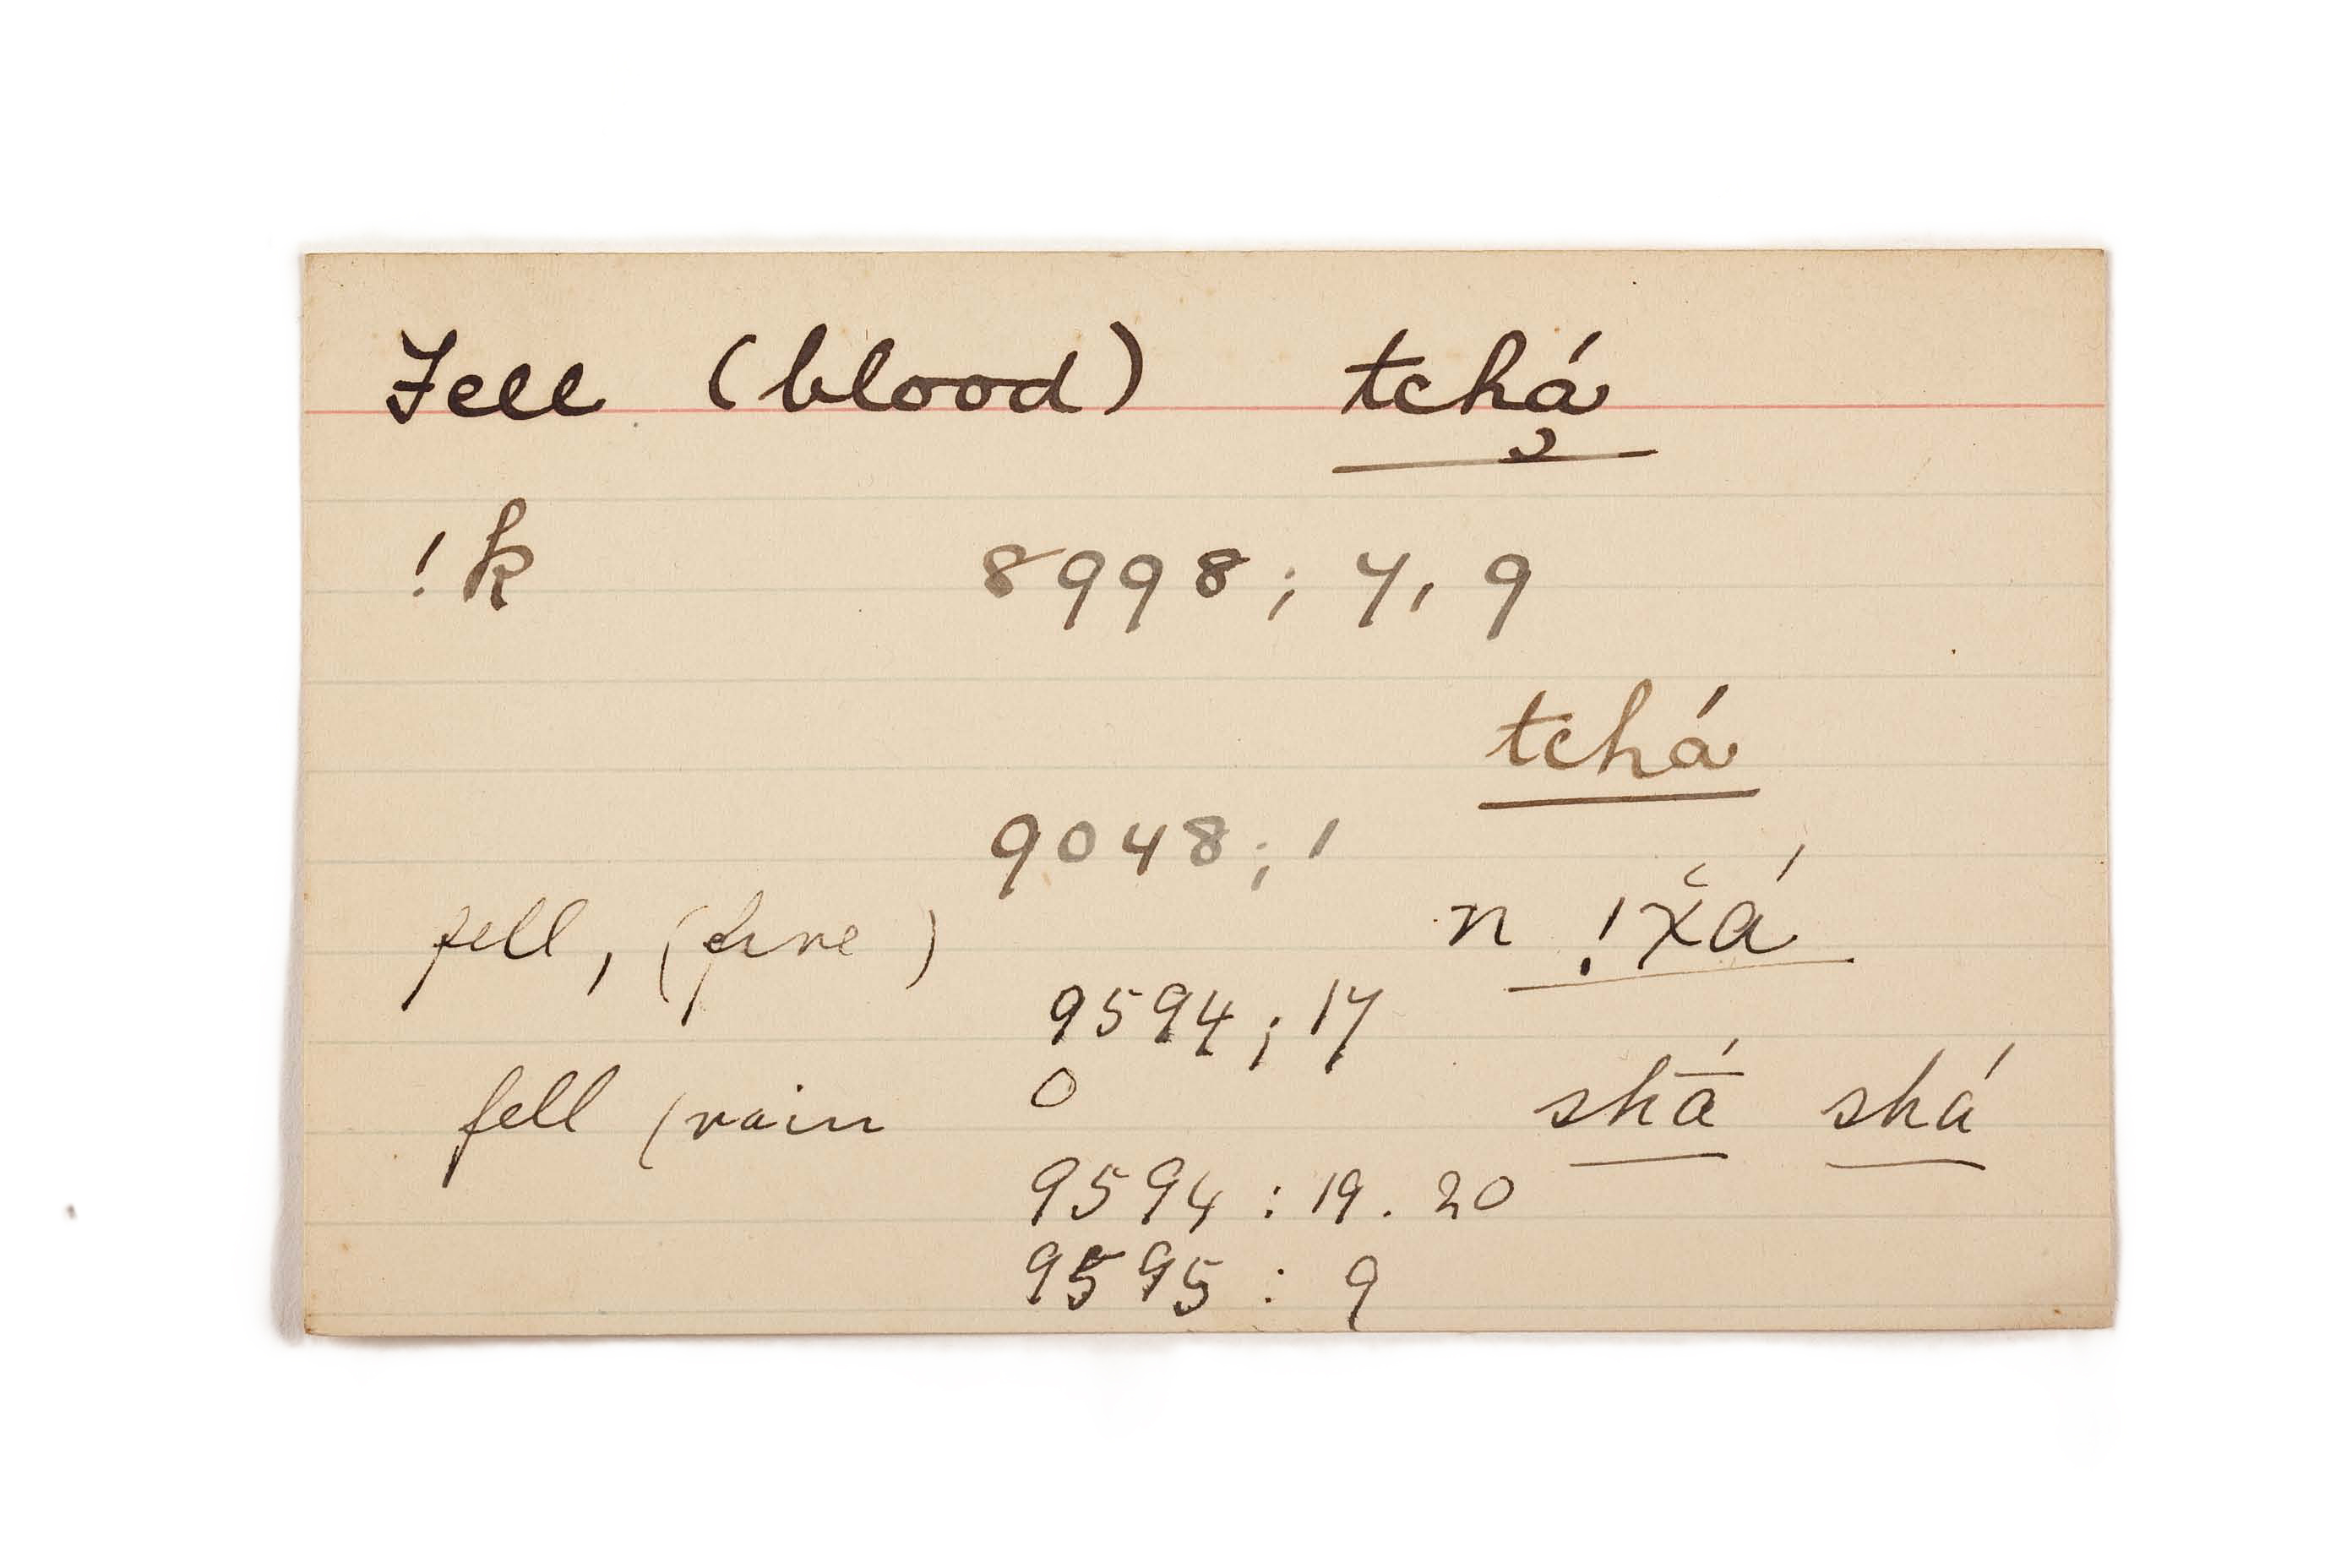 Fell (blood) tchá̰
!k 8998; 7, 9
tchá
9048; 1
fell, (fire) n !x̌á
9594; 17
fell (rain 0 shā́ shá
9594 : 19. 20
9595 : 9